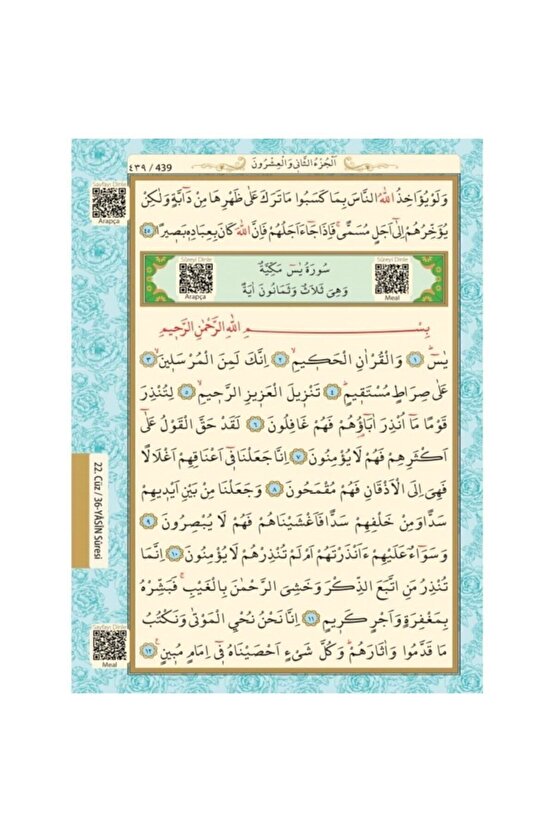 ٤٣٩ / 439
اَلْجُزْءُ الثَّانِي وَالْعِشْرُونَ
Sayfayı Dinle
Arapça
وَلَوْ يُؤَاخِذُ اللّٰهُ النَّاسَ بِمَا كَسَبُوا مَا تَرَكَ عَلٰى ظَهْرِهَا مِنْ دَٓابَّةٍ وَلٰكِنْ
يُؤَخِّرُهُمْ اِلٰٓى اَجَلٍ مُسَمًّىۚ فَاِذَا جَٓاءَ اَجَلُهُمْ فَاِنَّ اللّٰهَ كَانَ بِعِبَادِه۪ بَص۪يرًا ٤٥
Sûreyi Dinle
Arapça
سُورَةُ يٰسٓ مَكِّيَّةٌ
وَهِيَ ثَلَاثٌ وَثَمَانُونَ اٰيَةً
Sûreyi Dinle
Meal
بِسْمِ اللّٰهِ الرَّحْمٰنِ الرَّح۪يمِ
يٰسٓۜ ١ وَالْقُرْاٰنِ الْحَك۪يمِۙ ٢ اِنَّكَ لَمِنَ الْمُرْسَل۪ينَۙ ٣
عَلٰى صِرَاطٍ مُسْتَق۪يمٍۜ ٤ تَنْز۪يلَ الْعَز۪يزِ الرَّح۪يمِۙ ٥ لِتُنْذِرَ
قَوْمًا مَٓا اُنْذِرَ اٰبَٓاؤُهُمْ فَهُمْ غَافِلُونَ ٦ لَقَدْ حَقَّ الْقَوْلُ عَلٰٓى
اَكْثَرِهِمْ فَهُمْ لَا يُؤْمِنُونَ ٧ اِنَّا جَعَلْنَا ف۪ٓي اَعْنَاقِهِمْ اَغْلَالًا
فَهِيَ اِلَى الْاَذْقَانِ فَهُمْ مُقْمَحُونَ ٨ وَجَعَلْنَا مِنْ بَيْنِ اَيْد۪يهِمْ
سَدًّا وَمِنْ خَلْفِهِمْ سَدًّا فَاَغْشَيْنَاهُمْ فَهُمْ لَا يُبْصِرُونَ ٩
وَسَوَٓاءٌ عَلَيْهِمْ ءَاَنْذَرْتَهُمْ اَمْ لَمْ تُنْذِرْهُمْ لَا يُؤْمِنُونَ ١٠ اِنَّمَا
تُنْذِرُ مَنِ اتَّبَعَ الذِّكْرَ وَخَشِيَ الرَّحْمٰنَ بِالْغَيْبِۚ فَبَشِّرْهُ
بِمَغْفِرَةٍ وَاَجْرٍ كَر۪يمٍ ١١ اِنَّا نَحْنُ نُحْيِ الْمَوْتٰى وَنَكْتُبُ
مَا قَدَّمُوا وَاٰثَارَهُمْۜ وَكُلَّ شَيْءٍ اَحْصَيْنَاهُ ف۪ٓي اِمَامٍ مُب۪ينٍ۟ ١٢
22. Cüz / 36-YÂSÎN Sûresi
Sayfayı Dinle
Meal